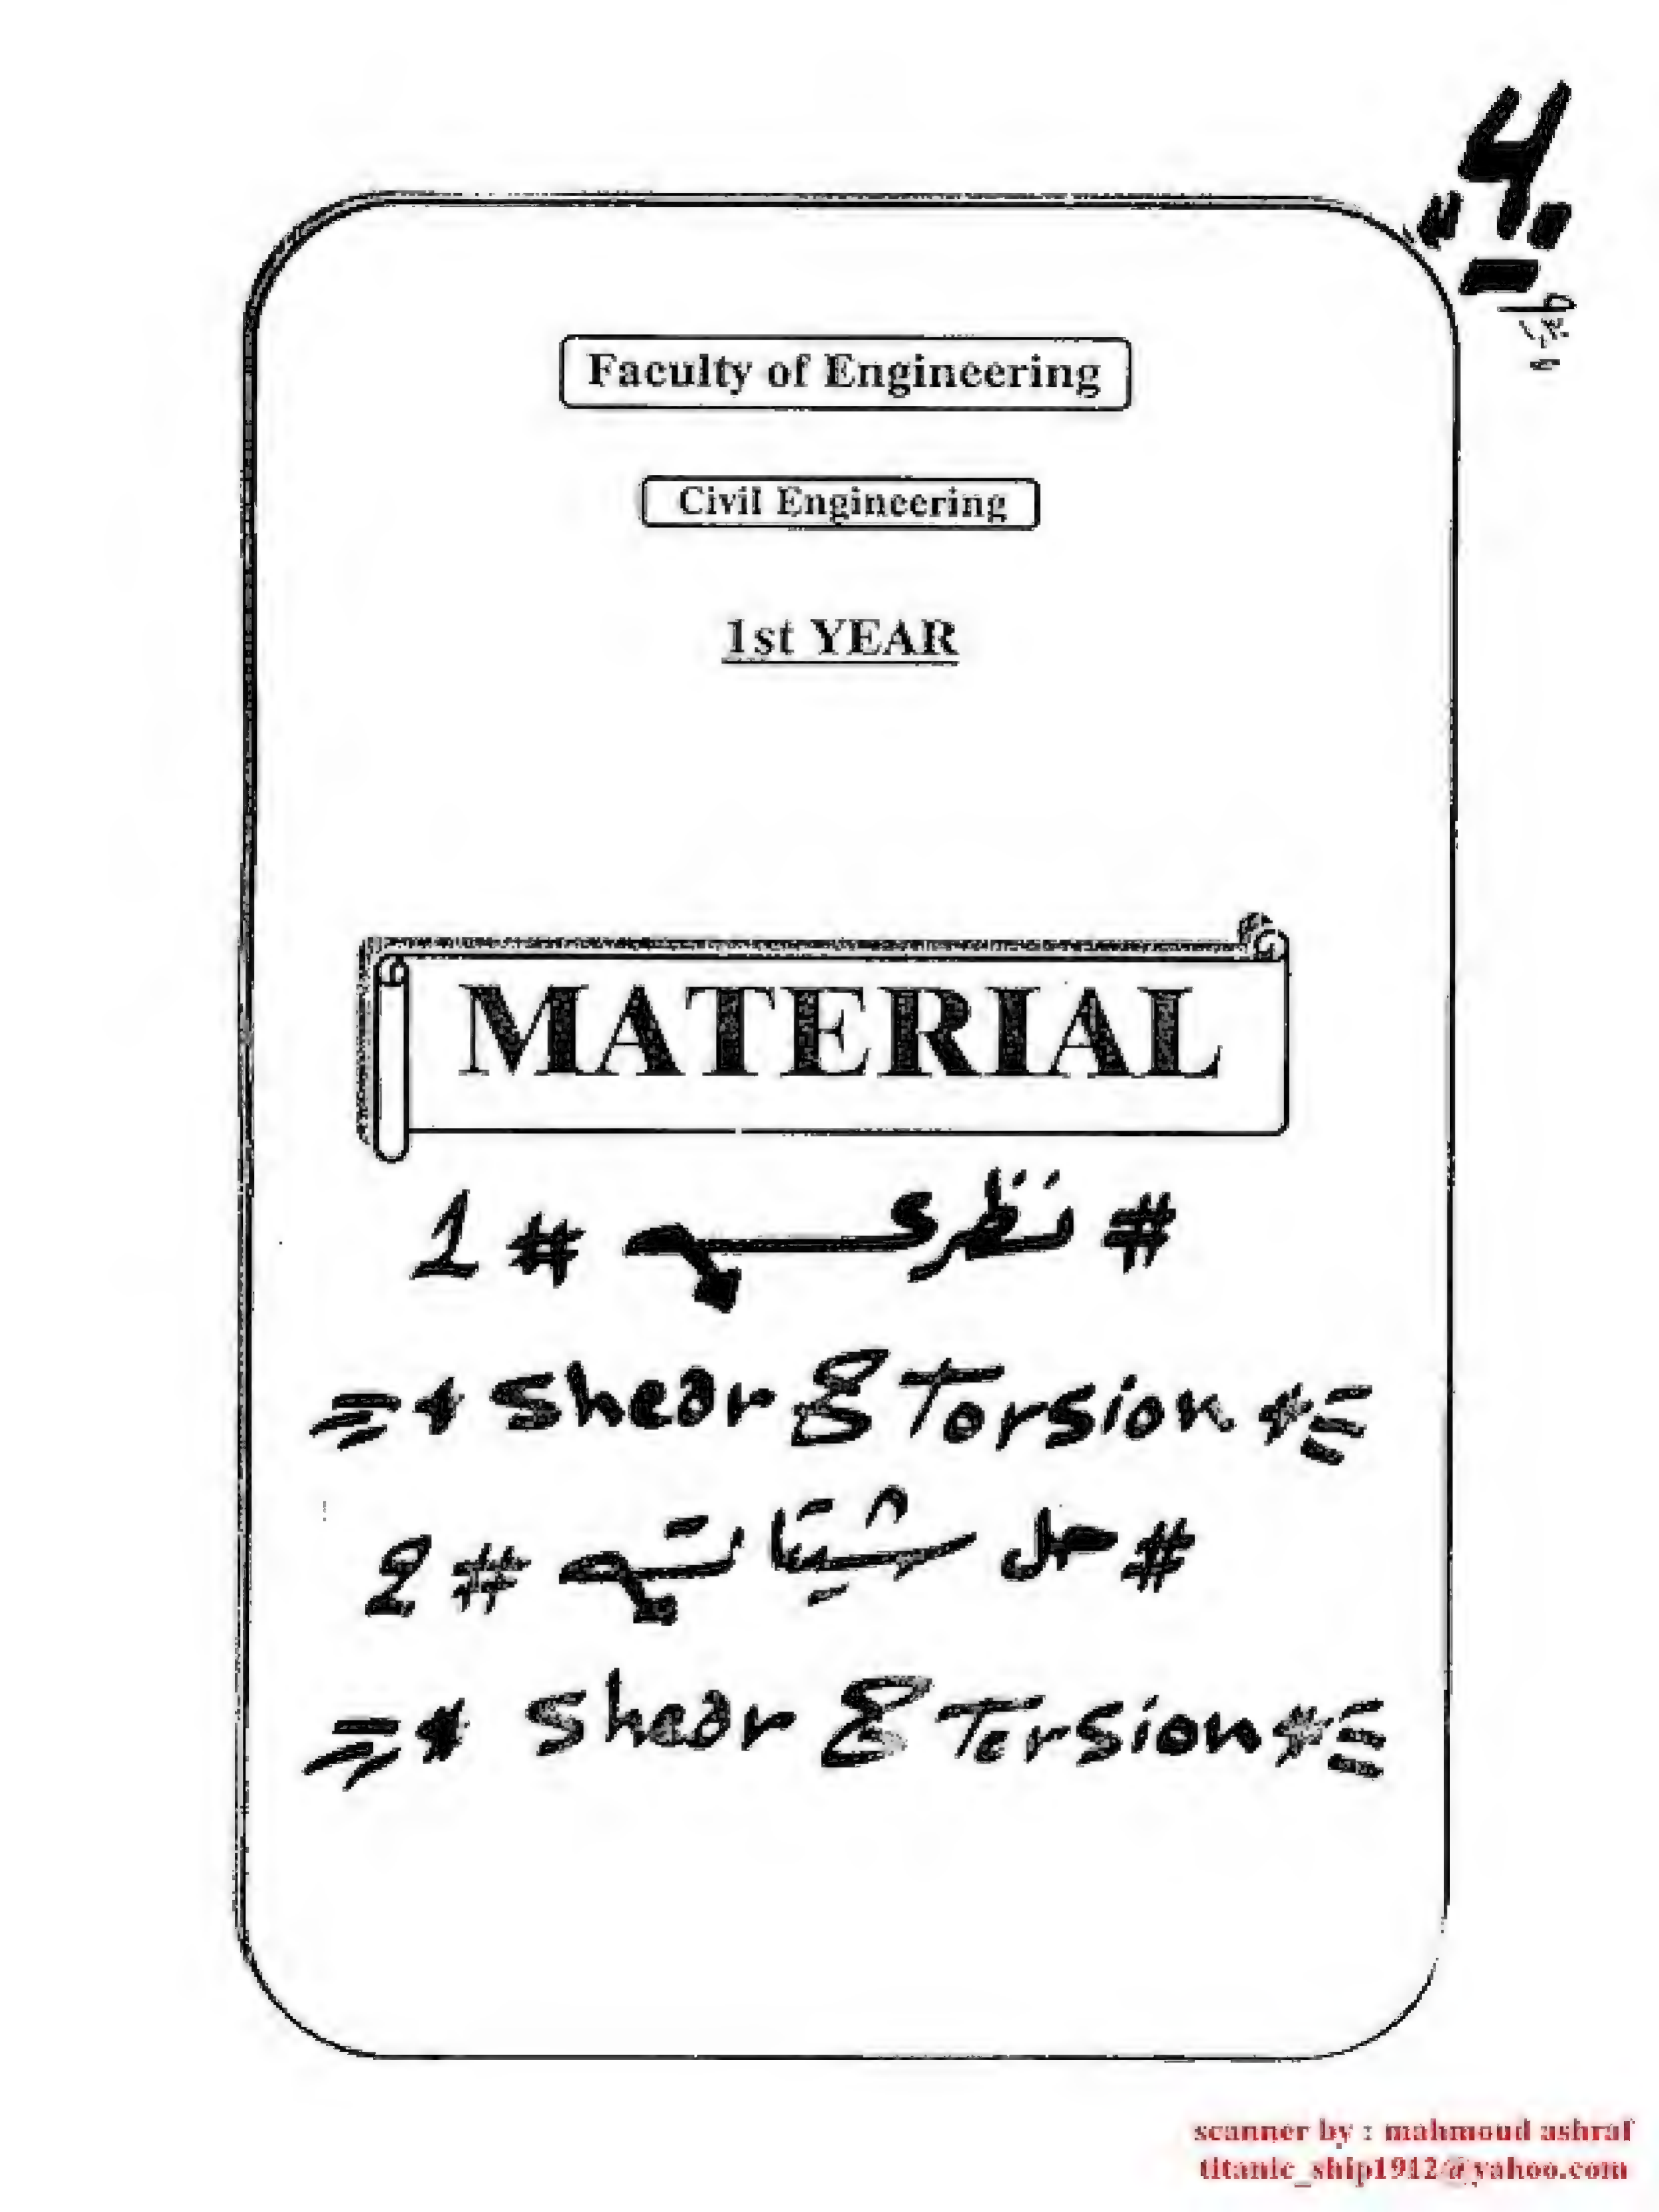 "4"
Faculty of Engineering
Civil Engineering
1st YEAR
MATERIAL
# نظرى # 1
* Shear & Torsion *
# حل شيتات # 2
* Shear & Torsion *
scanner by : mahmoud ashraf
titanic_ship1912@yahoo.com